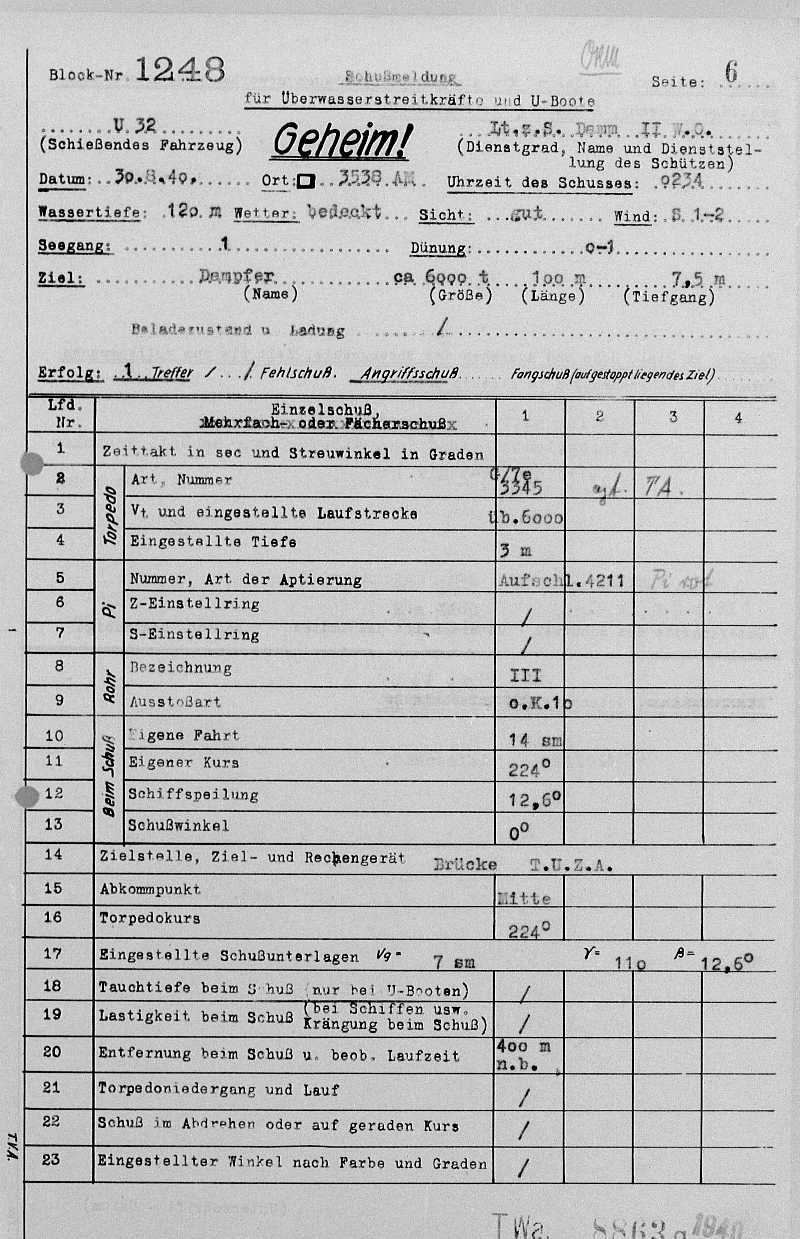 Block-Nr. 1248 Schußmeldung Seite: 6
für Überwasserstreitkräfte und U-Boote
U 32 Geheim! Lt.z.S. Damm II W.O.
(Schießendes Fahrzeug) (Dienstgrad, Name und Dienststel-
lung des Schützen)
Datum: 30.8.40. Ort: 3538 AM. Uhrzeit des Schusses: 0234
Wassertiefe: 120 m Wetter: bedeckt Sicht: gut Wind: S 1-2
Seegang: 1 Dünung: 0-1
Ziel: Dampfer ca 6000 t 100 m 7,5 m
(Name) (Größe) (Länge) (Tiefgang)
Beladezustand u Ladung /
Erfolg: 1 Treffer / / Fehlschuß. Angriffsschuß Fangschuß (auf gestoppt liegendes Ziel)
Lfd. Nr. Einzelschuß, 1 2 3 4
Mehrfach- oder Fächerschuß
1 Zeittakt in sec und Streuwinkel in Graden
Torpedo
2 Art, Nummer G/7e 3345 TA.
3 Vt und eingestellte Laufstrecke üb.6000
4 Eingestellte Tiefe 3 m
Pi
5 Nummer, Art der Aptierung Aufschl.4211 Pi rot
6 Z-Einstellring /
7 S-Einstellring /
Rohr
8 Bezeichnung III
9 Ausstoßart o.K.10
Beim Schuß
10 Eigene Fahrt 14 sm
11 Eigener Kurs 224°
12 Schiffspeilung 12,6°
13 Schußwinkel 0°
14 Zielstelle, Ziel- und Rechengerät Brücke T.U.Z.A.
15 Abkommpunkt Mitte
16 Torpedokurs 224°
17 Eingestellte Schußunterlagen Vg= 7 sm γ= 110 β= 12,6°
18 Tauchtiefe beim Schuß (nur bei U-Booten) /
19 Lastigkeit beim Schuß (bei Schiffen usw. Krängung beim Schuß) /
20 Entfernung beim Schuß u. beob. Laufzeit 400 m n.b.
21 Torpedoniedergang und Lauf /
22 Schuß im Abdrehen oder auf geraden Kurs /
23 Eingestellter Winkel nach Farbe und Graden /
T.V.A.
TWa. 8863 g 1940